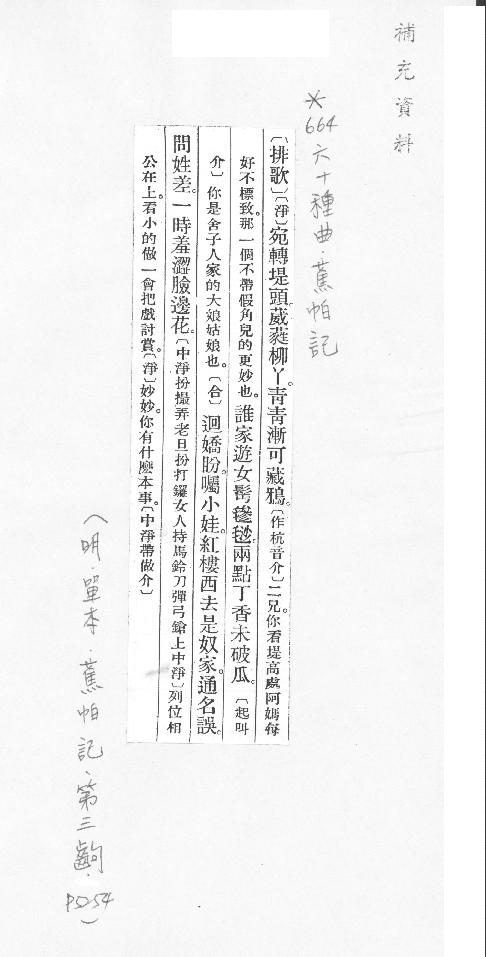 補充資料
*664六十種曲.蕉帕記
〔排歌〕〔淨〕宛轉堤頭葳蕤柳丫。青青漸可藏鴉。〔作杭音介〕二兄。你看堤高處阿媽每
好不標致。那一個不帶假角兒的更妙也。誰家遊女髩鬖髿。兩點丁香未破瓜。〔起叫
介〕你是舍子人家的大娘姑娘也。〔合〕迴嬌盼。囑小娃。紅樓西去是奴家。通名誤。
問姓差。一時羞澀臉邊花。〔中淨扮撮弄老旦扮打鑼女人持馬鈴刀彈弓鎗上中淨〕列位相
公在上。看小的做一會把戲討賞。〔淨〕妙妙。你有什麼本事。〔中淨帶做介〕
(明.單本.蕉帕記、第三齣.
P52-54)